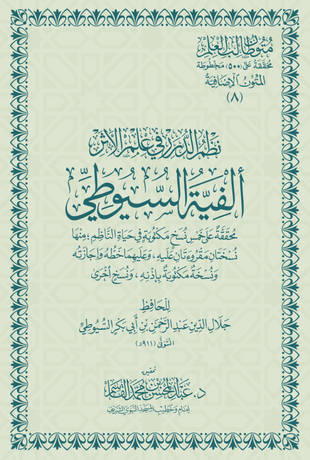 متون طالب العلم
محققة على (٥٠٠) مخطوطة
المتون الإضافية
(٨)
نظم الدرر في علم الأثر
ألفية السيوطي
محققة على خمس نسخ مكتوبة في حياة الناظم ؛ منها
نسختان مقروءتان عليه ، وعليهما خطه وإجازته
ونسخة مكتوبة بإذنه ، ونسخ أخرى
للحافظ
جلال الدين عبد الرحمن بن أبي بكر السيوطي
المتوفى (٩١١هـ)
تحقيق
د. عبد المحسن بن محمد القاسم
إمام وخطيب المسجد النبوي الشريف